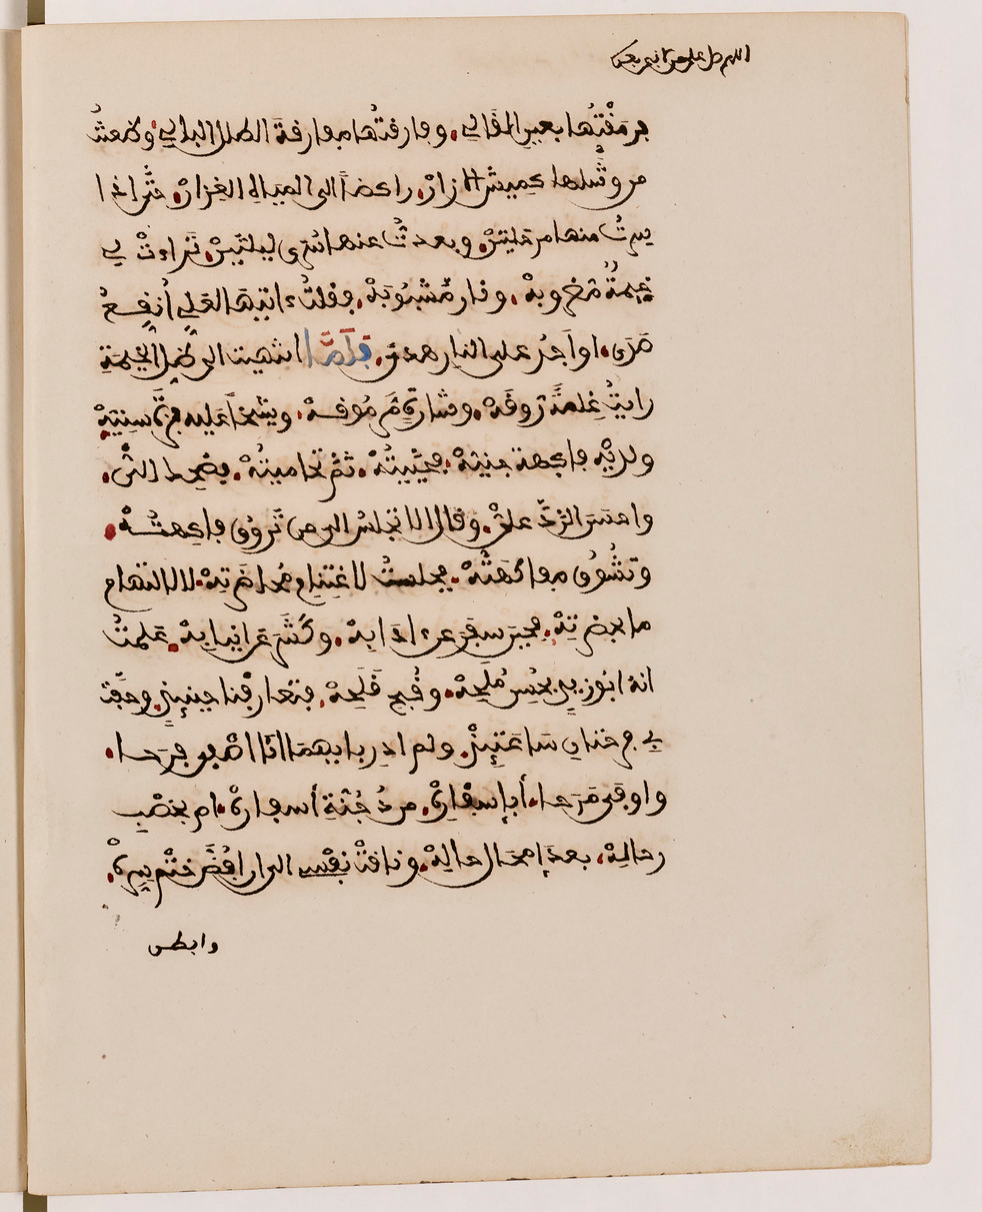 اللهم صل على من لا نبي بعده
فرمقتها بعين القالي، وفارقتها مفارقة الطلل البالي، وظعنت
من وشلها كميش الازار، راكضا الى المياه الغزار، حتى اذا
سرت منها مرحلتين، وبعدت عنها سُرَى ليلتين، تراءت لي
خيمة مضروبة، ونار مشبوبة، فقلت ءاتيهما لعلي أنقع
صَدًى، او اجد على النار هدى، فلما انتهيت الى ظل الخيمة
رايت غلمة روقه، وشارة مرموقه، وشيخا عليه بزة سنيه
ولديه فاكهة جنيه، فحييته، ثم تحاميته، فضحك الي،
واحسن الرد علي، وقال الا تجلس الى من تروق فاكهته،
وتشوق مفاكهته، فجلست لاغتنام محاضرته، لا لالتهام
ما بحضرته، فحين سفر عن ءادابه، وكشر عن انيابه، علمت
انه ابو زيد بحسن ملحه، وقبح قلحه، فتعارفنا حينئذ، وحفت
بي فرحتان ساعتئذ، ولم ادر بايهما انا اصفى فرحا،
واوفى مرحا، أبإسفاره، من دجنة أسفاره، ام بخصب
رحاله، بعد إمحال حاله، وتاقت نفسي الى ان افض ختم سره،
وابطن